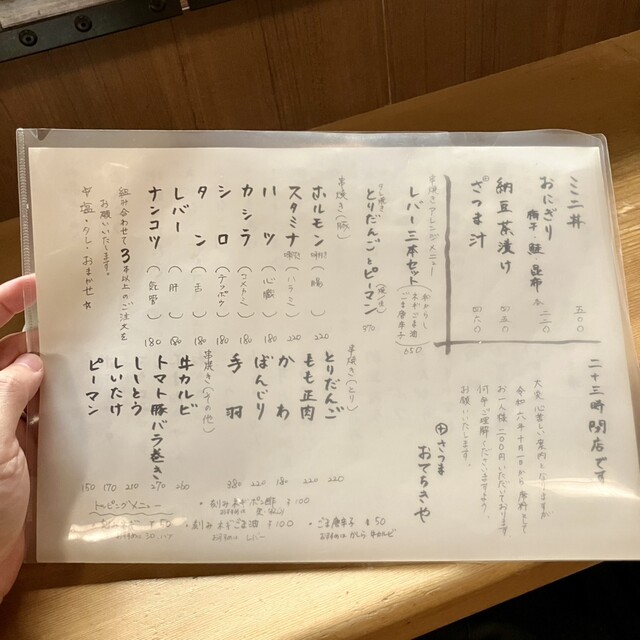 二十三時閉店です
大変心苦しい案内となりますが
令和六年十月一日から席料として
お一人様一〇〇円いただいております
何卒ご理解くださいますよう、
お願いいたします。
さつま
おてらきや
ミニ丼 五〇〇
おにぎり 梅干、鮭、昆布 二二〇
納豆茶漬け 四五〇
さつま汁 四〇〇
串焼きアレンジメニュー
レバー三本セット ごま唐辛子 650
とりだんごとピーマン 370
串焼き(豚)
ホルモン (腸) 220
スタミナ (ハラミ) 220
ハツ (心臓) 180
カシラ (コメカミ) 180
シロ (テッポウ) 180
タン (舌) 180
レバー (肝) 180
ナンコツ (軟骨) 180
組み合わせて3本以上のご注文を
お願いいたします。
塩・タレ・おまかせ
串焼き(とり)
とりだんご 220
もも正肉 220
かわ 180
ぼんじり 220
手羽 380
串焼き(その他)
牛カルビ 260
トマト豚バラ巻き 270
ししとう 210
しいたけ 170
ピーマン 150
トッピングメニュー
・刻みネギポン酢 ¥100
・刻みネギごま酒 ¥100
おすすめは レバー
・ごま唐辛子 ¥50
おすすめは かしら 牛カルビ